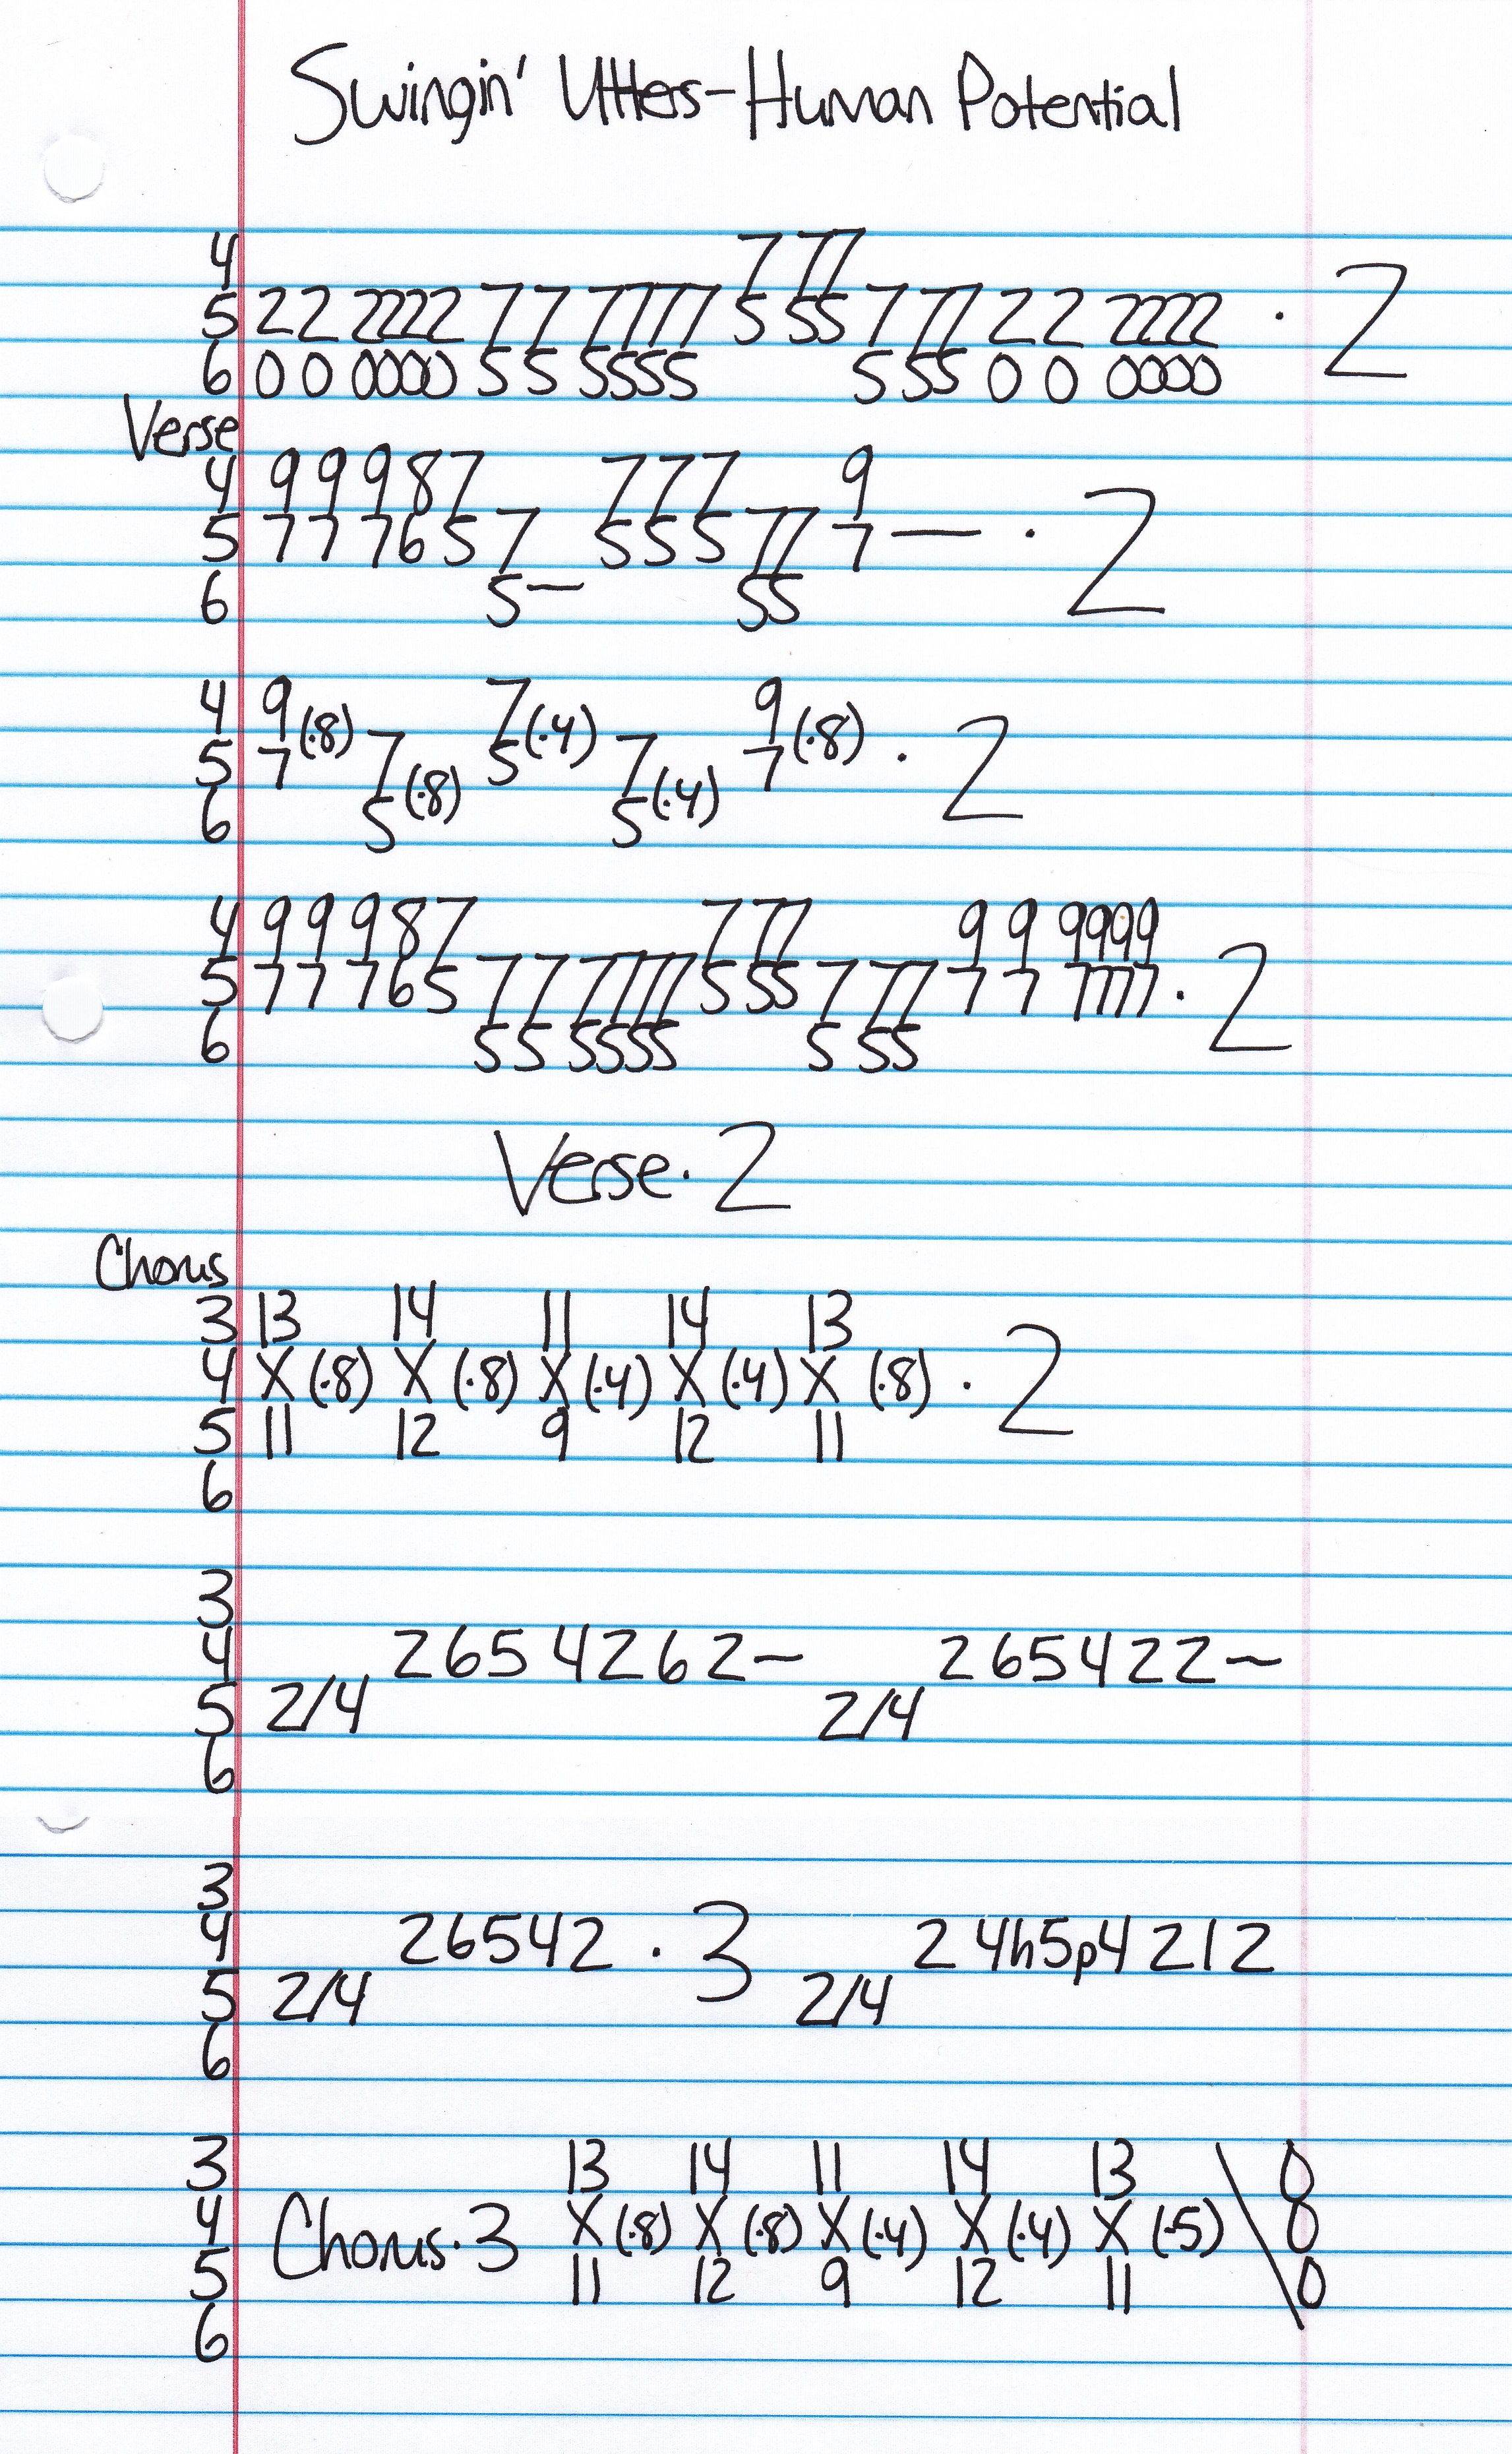 Swingin' Utters-Human Potential
4 7 77
5 22 2222 7 7 7777 5 55 7 77 2 2 2222 · 2
6 0 0 0000 5 5 5555 5 55 0 0 0000
Verse
4 9 9 9 8 7 7 7 7 9
5 7 7 7 6 5 7 5 5 5 77 7 — · 2
6 5 — 55
4 9 (·8) 7 (·4) 9 (·8)
5 7 7 (·8) 5 7 (·4) 7 · 2
6 5 5
4 9 9 9 8 7 7 77 9 9 9999
5 7 7 7 6 5 7 7 7777 5 55 7 77 7 7 7777 · 2
6 5 5 5555 5 55
Verse · 2
Chorus
3 13 14 11 14 13
4 X (·8) X (·8) X (·4) X (·4) X (·8) · 2
5 11 12 9 12 11
6
3
4 2 6 5 4 2 6 2 — 2 6 5 4 2 2 —
5 2/4 2/4
6
3
4 2 6 5 4 2 · 3 2 4h5p4 2 1 2
5 2/4 2/4
6
3 13 14 11 14 13 \ 0
4 Chorus · 3 X (·8) X (·8) X (·4) X (·4) X (·5) 0
5 11 12 9 12 11 0
6